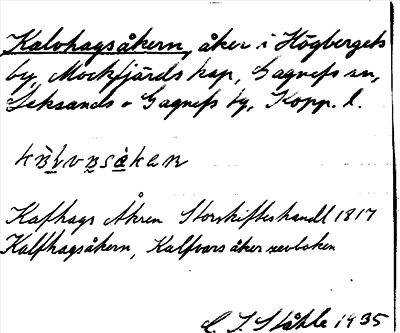 Kalvhagsåkern, åker i Högbergets
by, Mockfjärds kap, Gagnefs sn,
Leksands o Gagnefs tg, Kopp. l.
Kafhags Åkren Storskifteshandl 1817
Kalfhagsåkern, Kalfvars åker
C. I. Ståhle 1935